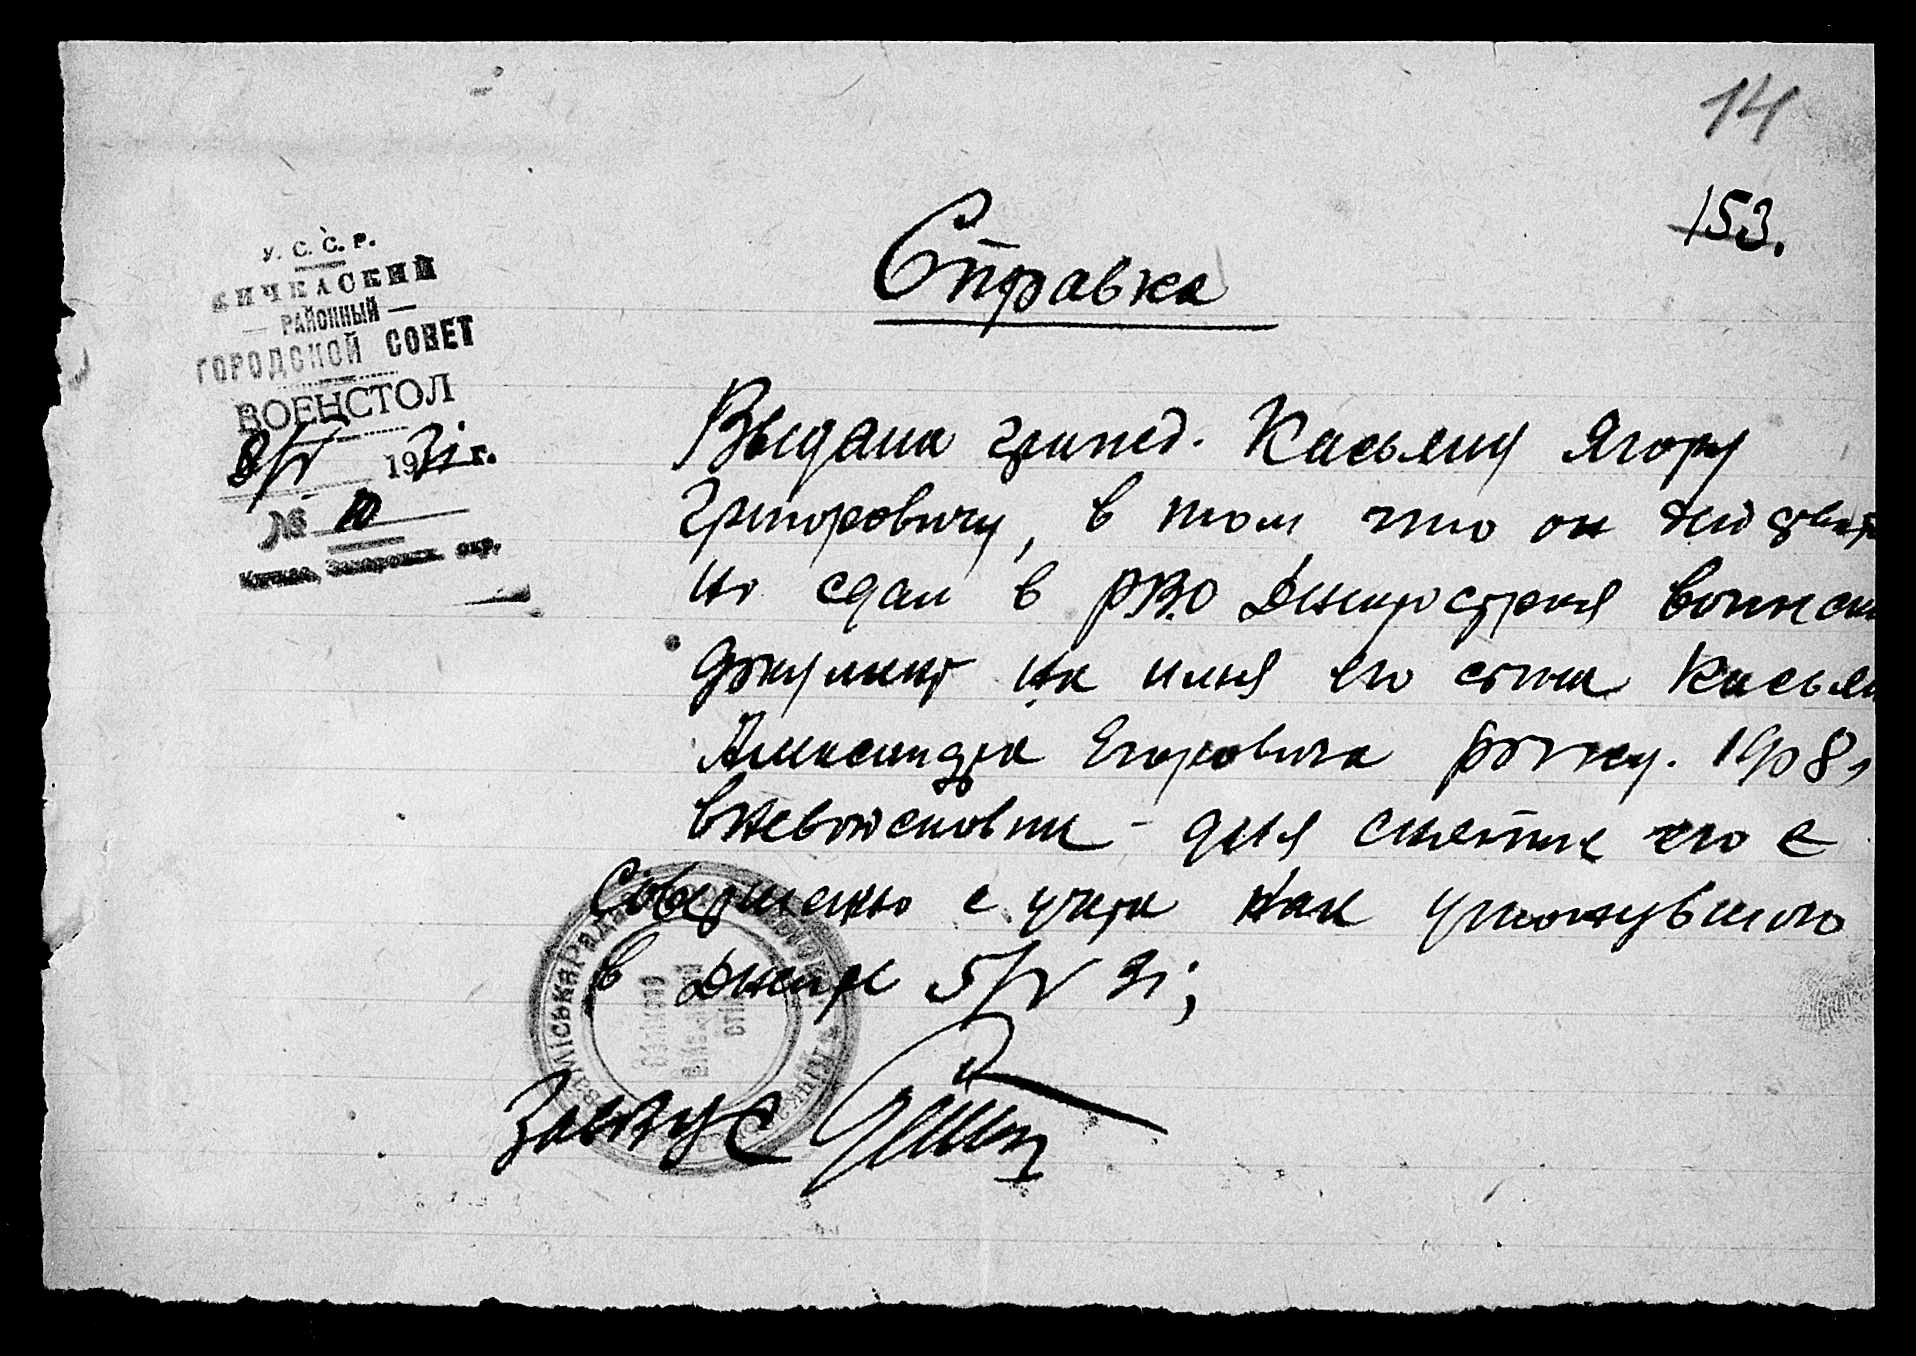 14
153.
У. С. С. Р.
КИЧКАССКИЙ
РАЙОННЫЙ
ГОРОДСКОЙ СОВЕТ
ВОЕНСТОЛ
8/V 1931 г.
№ 10
Справка
Выдана гражд. Касьяну Ягору
Григоровичу, в том что он действит
но сдал в РВО Днепростроя воинск
документ на имя его сына Касьян
Александра Егоровича рожд. 1908,
вневойсковик - для снятия его с
совершенно с учета как утонувшего
в Днепре 5/V 31;
ЗавВУС